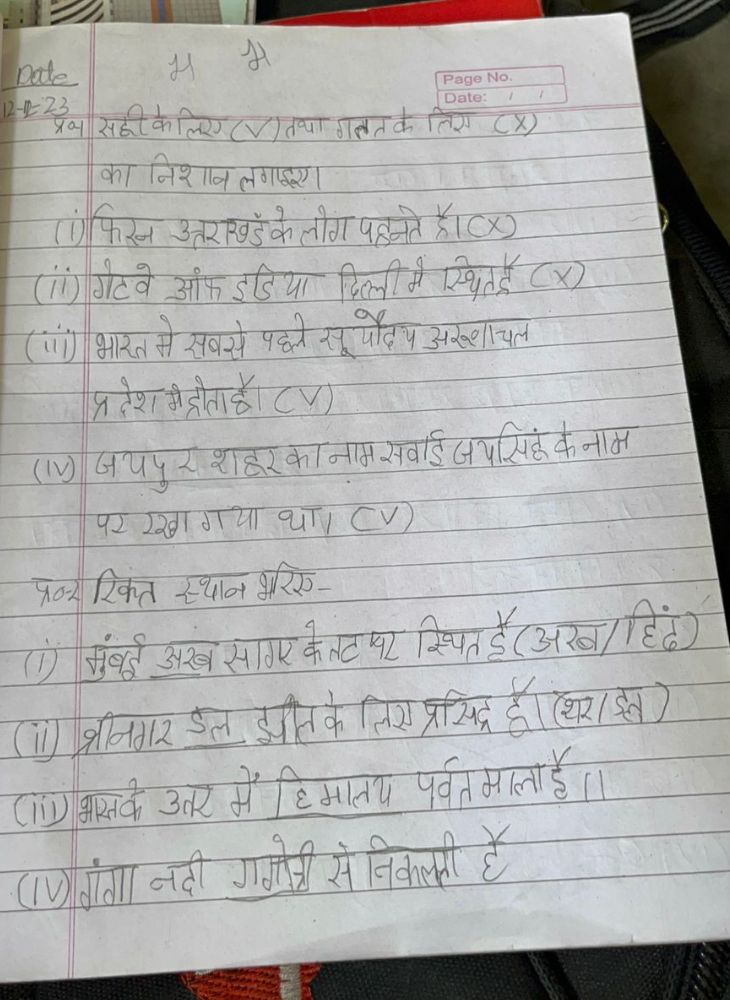 भ भ
Date
12-12-23
Page No.
Date: / /
प्र०1 सही के लिए (√) तथा गलत के लिए (X)
का निशान लगाइए।
(i) फिरन उतराखडं के लोग पहनते है। (X)
(ii) गेटवे ऑफ इडिया दिल्ली मे स्थित है (X)
(iii) भारत मे सबसे पहले सूर्योदय अरूणाचल
प्रदेश मे होता है। (√)
(iv) जयपुर शहर का नाम सवाई जयसिहं के नाम
पर रखा गया था। (√)
प्र०२ रिक्त स्थान भरिए-
(i) मुंबई अरब सागर के तट पर स्थित है (अरब/हिदं)
(ii) श्रीनगर डल झील के लिए प्रसिद्व है। (थर/डल)
(iii) भारत के उतर में हिमालय पर्वत माला है।।
(iv) गंगा नदी गगोत्री से निकलती है